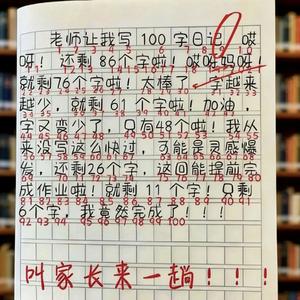 老师让我写100字日记，哎
呀！还剩86个字啦！哎呀妈呀
就剩76个字啦！太棒了，字越来
越少，就剩61个字啦！加油，
字又变少了，只有48个啦！我从
来没写这么快过，可能是灵感爆
发，还剩26个字，这回能提前完
成作业啦！就剩11个字！只剩
6个字，我竟然完成了！！！
92 93 94 95 96 97 98 99 100
叫家长来一趟！！！